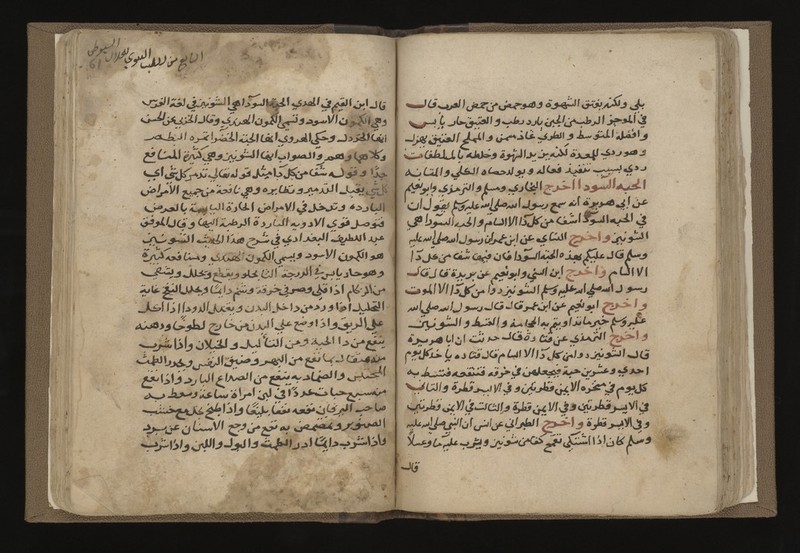 بلى ولكنه يفتق الشهوة وهو حمض من حمض العرب قال
في الموجز الرطب من الجبن بارد رطب والعتيق حار يابس
وافضله المتوسط والطري غاذ مسمن والمملح العتيق يهزل
وهو ردي للمعدة لكنه يزيد الشهوة وخلطه بالملطفات
ردي بسبب تنفيذها له ويولد حصاة الكلى والمثانة
الحبه السودا اخرج البخاري ومسلم والترمذي وابو نعيم
عن ابي هريرة انه سمع رسول الله صلى الله عليه وسلم يقول ان
في الحبه السودا شفا من كل دا الا السام والحبه السودا هي
الشونيز واخرج النساي عن ابن عمر ان رسول الله صلى الله عليه
وسلم قال عليكم بهذه الحبه السودا فان فيها شفا من كل دا
الا السام واخرج ابن السني وابو نعيم عن بريدة قال قال
رسول الله صلى الله عليه وسلم الشونيز دوا من كل دا الا الموت
واخرج ابو نعيم عن ابن عمر قال قال رسول الله صلى الله
عليه وسلم خير ما تداويتم به الحجامة والقسط والشونيز
واخرج الترمذي عن قتادة قال حدثت ان ابا هريرة
قال الشونيز دوا من كل دا الا السام قال قتادة ياخذ كل يوم
احدي وعشرين حبة فيجعلهن في خرقه فتنقعه فتسعط به
كل يوم في منخره الايمن قطرتين وفي الايسر قطرة والثاني
في الايسر قطرتين وفي الايمن قطرة والثالث في الايمن قطرتين
وفي الايسر قطرة واخرج الطبراني عن انس ان النبي صلى الله عليه
وسلم كان اذا اشتكى تقمح كفا من شونيز ويشرب عليه ما وعسلا
قال
قال ابن القيم في الهدي الحبه السودا هي الشونيز في لغة الفرس
وهي الكمون الاسود وتسمى الكمون الهندي وقال الحربي عن الحسن
انها الخردل وحكى الهروي انها الحبة الخضرا ثمرة البطم
وكلاهما وهم والصواب انها الشونيز وهي كثيرة المنافع
جدا وقوله شفا من كل دا مثل قوله تعالى تدمر كل شي اي
كل شي يقبل التدمير ونظايره وهي نافعة من جميع الامراض
الباردة وتدخل في الامراض الحادة اليابسة بالعرض
فتوصل قوي الادوية الباردة الرطبة اليها وقال الموفق
عبد اللطيف البغدادي في شرح هذا الحديث الشونيز
هو الكمون الاسود ويسمى الكمون الهندي ومنافعه كثيرة
وهو حار يابس في الدرجة الثالثة يقطع ويحلل ويشفي
من الزكام اذا قلي وصر في خرقة وشم دايما ويحلل النفخ غاية
التحليل اذا ورد من داخل البدن ويقتل الدود اذا اكل
على الريق واذا وضع على البطن من خارج لطوخا ودهنه
ينفع من دا الحية ومن الثاليل والخيلان واذا شرب
منه مثقال بما نفع من البهر وضيق النفس ويحدر الطمث
المحتبس والضماد به ينفع من الصداع البارد واذا نقع
منه سبع حبات عددا في لبن امراة ساعة وسعط به
صاحب اليرقان نفعه نفعا بليغا واذا طبخ بخل مع خشب
الصنوبر وتمضمض به نفع من وجع الاسنان عن برد
واذا شرب دايما ادر الطمث والبول واللبن واذا شرب